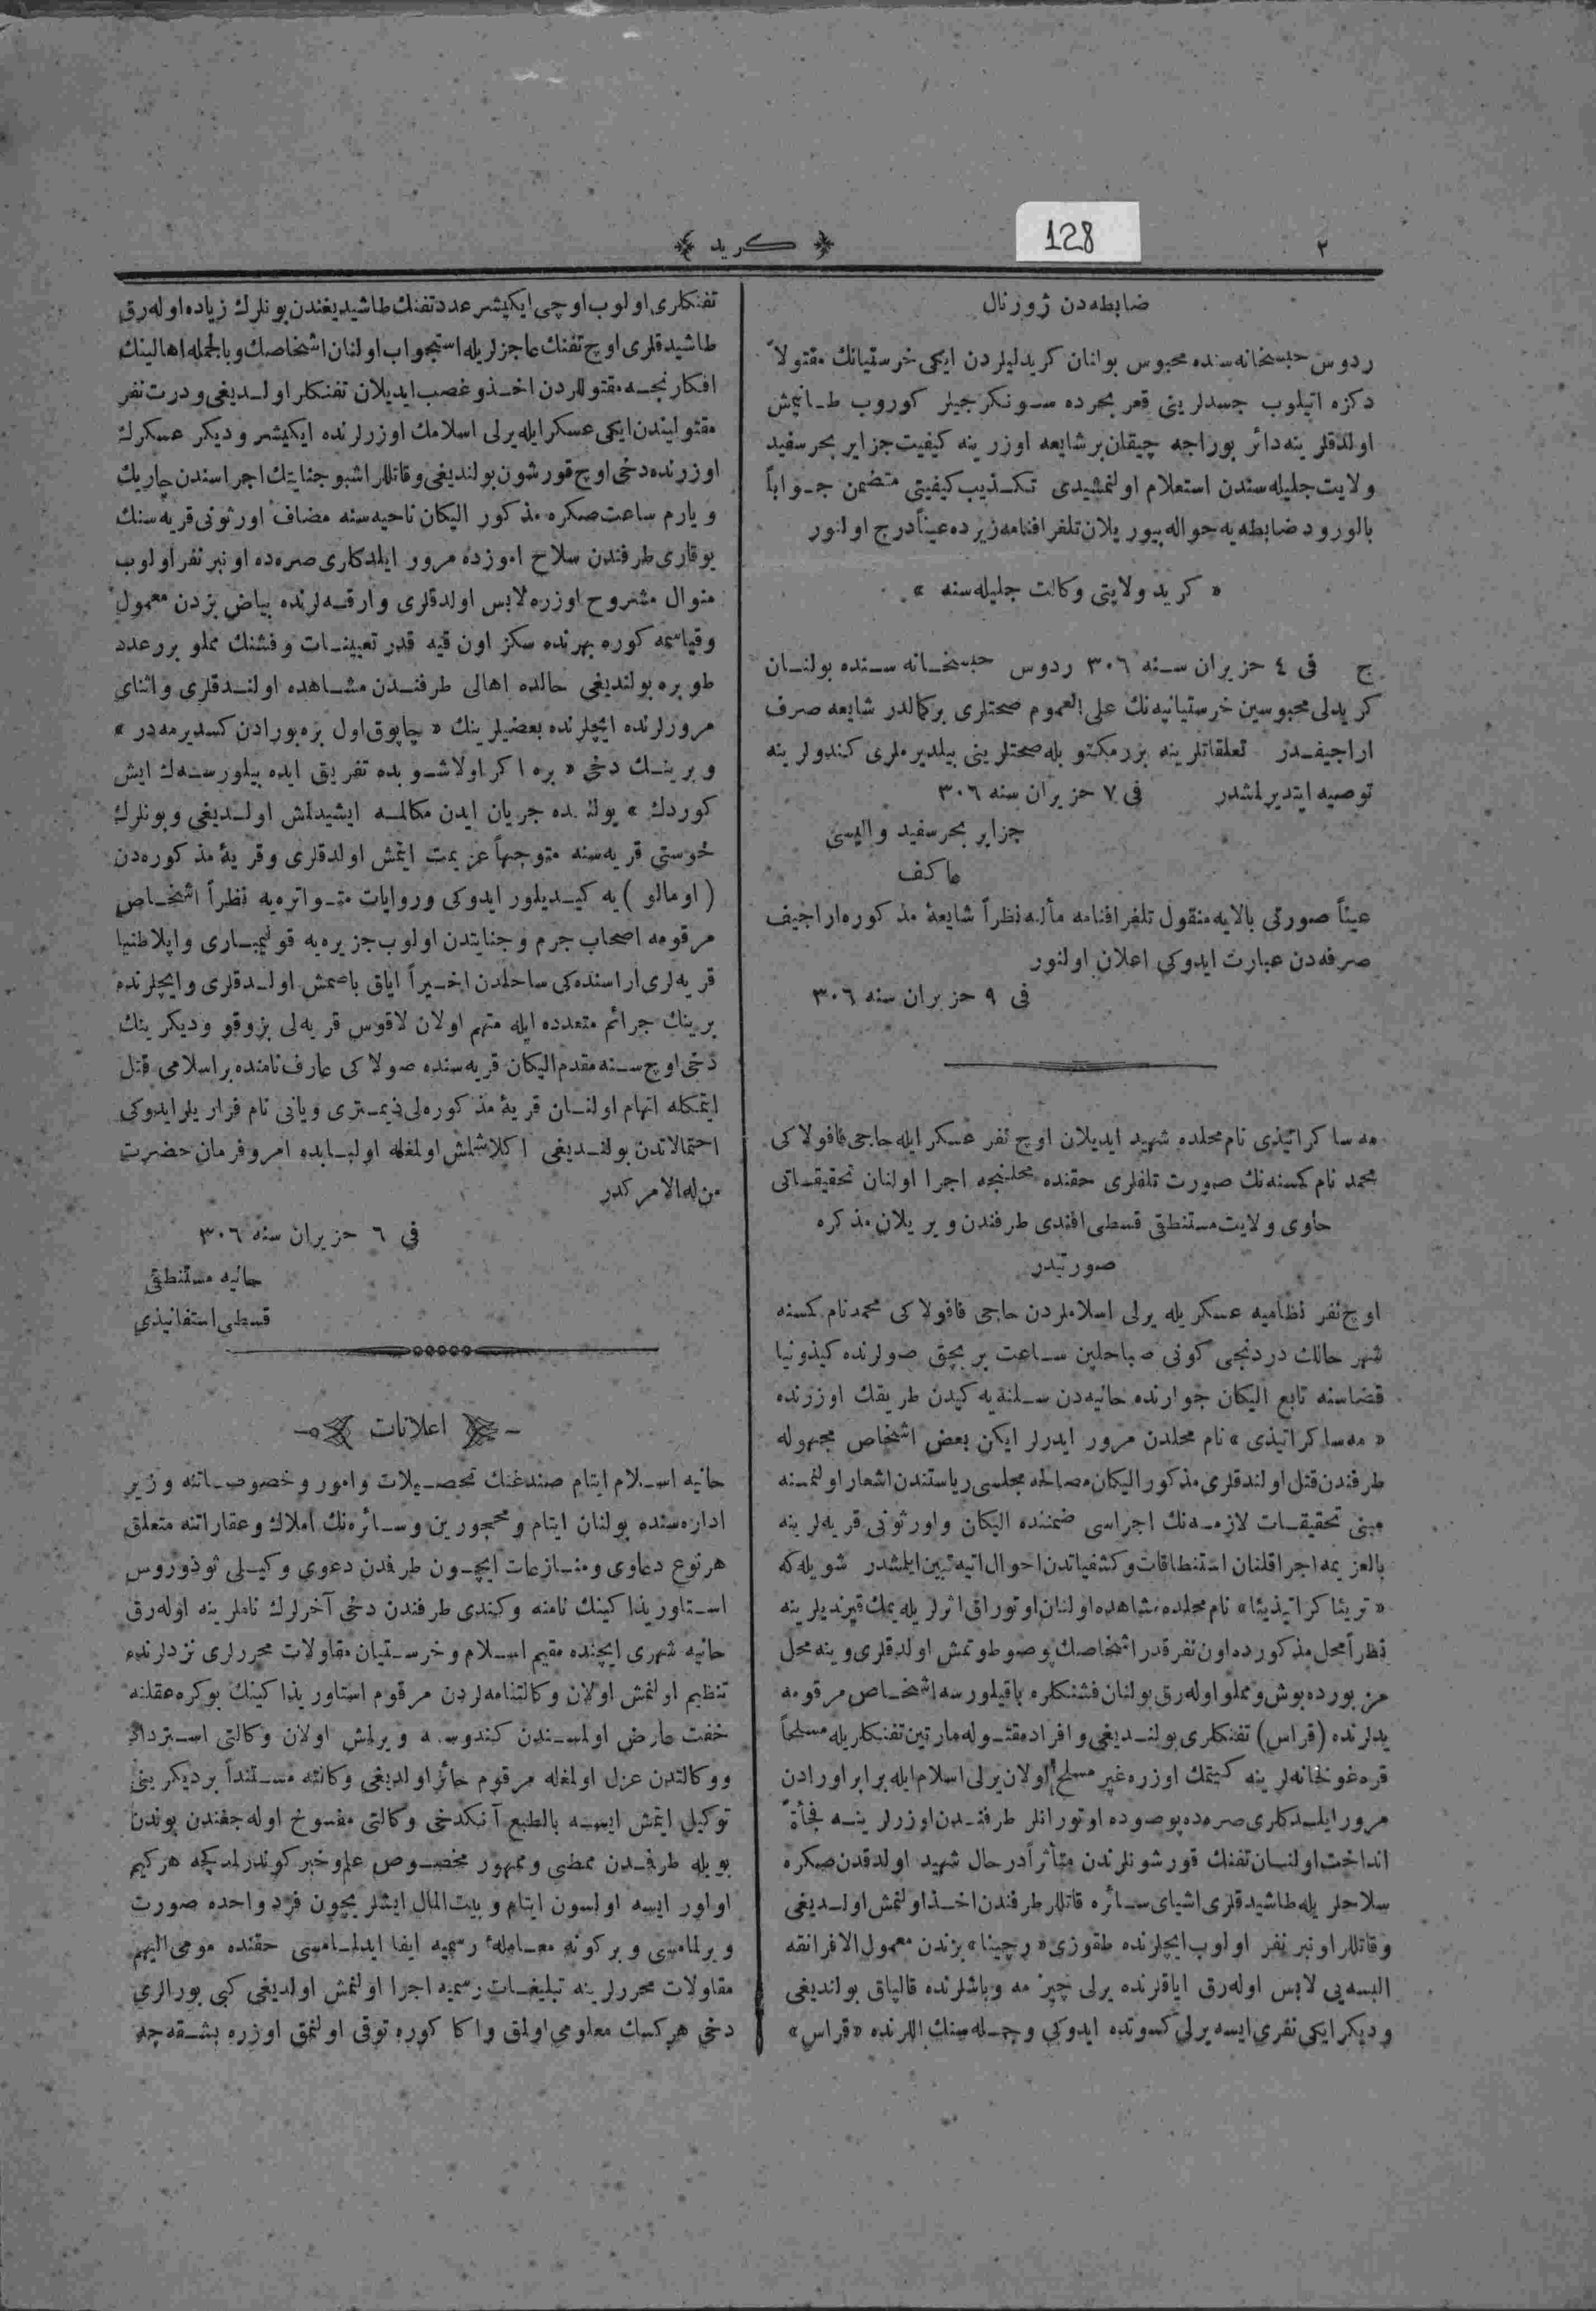 ٢
128
كريد
ضابطه‌دن ژورنال
ردوس حبسخانه‌سنده محبوس بولنان كريدليلردن ايكى خرستيانك مقتولاً
دكزه اتيلوب جسدلرينى قعر بحرده سونكرجيلر كوروب طانيمش
اولدقلرينه دائر بوراجه چيقان بر شايعه اوزرينه كيفيت جزاير بحر سفيد
ولايت جليله‌سندن استعلام اولنمشيدى تكذيب كيفيتى متضمن جواباً
بالورود ضابطه‌يه حواله بيوريلان تلغرافنامه زيرده عيناً درج اولنور
« كريد ولايتى وكالت جليله‌سنه »
ج فى ٤ حزيران سنه ٣٠٦ ردوس حبسخانه سنده بولنان
كريدلى محبوسين خرستيانيه‌نك على العموم صحتلرى بركمالدر شايعه صرف
اراجيفدر تعلقاتلرينه برر مكتوبله صحتلرينى بيلديرملرى كندولرينه
توصيه ايتديرلمشدر فى ٧ حزيران سنه ٣٠٦
جزاير بحر سفيد واليسى
عاكف
عيناً صورتى بالايه منقول تلغرافنامه مألنه نظراً شايعهٔ مذكوره اراجيف
صرفه‌دن عبارت ايدوكى اعلان اولنور
فى ٩ حزيران سنه ٣٠٦
مه‌سا كراتيذى نام محلده شهيد ايديلان اوچ نفر عسكر ايله حاجى فافولاكى
محمد نام كمسنه‌نك صورت تلفلرى حقنده محلنجه اجرا اولنان تحقيقاتى
حاوى ولايت مستنطقى قسطى افندى طرفندن ويريلان مذكره
صورتيدر
اوچ نفر نظاميه عسكريله يرلى اسلاملردن حاجى فافولاكى محمد نام كمسنه
شهر حالك دردنجى كونى صباحلين ساعت بر بچق صولرنده كيذونيا
قضاسنه تابع اليكان جوارنده حانيه‌دن سلنه‌يه كيدن طريقك اوزرنده
« مه‌سا كراتيذى » نام محلدن مرور ايدرلر ايكن بعض اشخاص مجهوله
طرفندن قتل اولندقلرى مذكور اليكان مصالحه مجلسى رياستندن اشعار اولنمسنه
مبنى تحقيقات لازمه‌نك اجراسى ضمننده اليكان واورثونى قريه‌لرينه
بالعزيمه اجرا قلنان استنطاقات وكشفياتدن احوال اتيه تبين ايلمشدر شويله‌كه
« تريئا كراتيذيئا » نام محلده مشاهده اولنان اوتوراق اثرلريله يمك قيرنديلرينه
نظراً محل مذكورده اون نفر قدر اشخاصك پوصو طوتمش اولدقلرى وينه محل
مزبورده بوش ومملو اوله‌رق بولنان فشنكلره باقيلورسه اشخاص مرقومه
يدلرنده (قراس) تفنكلرى بولنديغى وافراد مقتوله مارتين تفنكلريله مسلحاً
قره‌غولخانه‌لرينه كيتمك اوزره غير مسلح اولان يرلى اسلام ايله برابر اورادن
مرور ايلدكلرى صره‌ده پوصوده اوتورانلر طرفندن اوزرلرينه فجأةً
انداخت اولنان تفنك قورشونلرندن متأثراً در حال شهيد اولدقدن صكره
سلاحلريله طاشيدقلرى اشياى سائره قاتللر طرفندن اخذ اولنمش اولديغى
وقاتللر اونبر نفر اولوب ايچلرنده طقوزى « رچينا » بزندن معمول الافرانقه
البسه‌يى لابس اوله‌رق اياقلرنده يرلى چيزمه وباشلرنده قالپاق بولنديغى
وديكر ايكى نفرى ايسه يرلى كسوتده ايدوكى وجمله‌سنك اللرنده «قراس»
تفنكلرى اولوب اوچى ايكيشر عدد تفنك طاشيديغندن بونلرك زياده اوله‌رق
طاشيدقلرى اوچ تفنك عاجزلريله استجواب اولنان اشخاصك وبالجمله اهالينك
افكارنجه مقتوللردن اخذ وغصب ايديلان تفنكلر اولديغى ودرت نفر
مقتوليندن ايكى عسكر ايله يرلى اسلامك اوزرلرنده ايكيشر وديكر عسكرك
اوزرنده دخى اوچ قورشون بولنديغى وقاتللر اشبو جنايتك اجراسندن چاريك
ويارم ساعت صكره مذكور اليكان ناحيه‌سنه مضاف اورثونى قريه‌سنك
يوقارى طرفندن سلاح اموزده مرور ايلدكلرى صره‌ده اونبر نفر اولوب
منوال مشروح اوزره لابس اولدقلرى وارقه‌لرنده بياض بزدن معمول
وقياسمه كوره بهرنده سكز اون قيه قدر تعيينات وفشنك مملو برر عدد
طوبره بولنديغى حالده اهالى طرفندن مشاهده اولندقلرى واثناى
مرورلرنده ايچلرنده بعضيلرينك « چاپوق اول بزه بورادن كسديرمه‌در »
وبرينك دخى « بره اكر اولاشوبده تفريق ايده بيلورسه‌ك ايش
كوردك » يولنده جريان ايدن مكالمه ايشيدلمش اولديغى وبونلرك
خوستى قريه‌سنه متوجهاً عزيمت ايتمش اولدقلرى وقريهٔ مذكوره‌دن
( اومالو ) يه كيديلور ايدوكى وروايات متواتره‌يه نظراً اشخاص
مرقومه اصحاب جرم وجنايتدن اولوب جزيره‌يه قولمبارى واپلاطنيا
قريه‌لرى اراسنده‌كى ساحلدن اخيراً اياق باصمش اولدقلرى وايچلرنده
برينك جرائم متعدده ايله متهم اولان لاقوس قريه‌لى بزوقو وديكرينك
دخى اوچ سنه مقدم اليكان قريه‌سنده صولاكى عارف نامنده بر اسلامى قتل
ايتمكله اتهام اولنان قريهٔ مذكوره‌لى ذيمترى ويانى نام فراريلر ايدوكى
احتمالاتدن بولنديغى اكلاشلمش اولمغله اولبابده امر وفرمان حضرت
من له الامركدر
فى ٦ حزيران سنه ٣٠٦
حانيه مستنطقى
قسطى استفانيذى
اعلانات
حانيه اسلام ايتام صندغنك تحصيلات وامور وخصوصاتنه وزير
اداره‌سنده بولنان ايتام ومحجورين وسائره‌نك املاك وعقاراتنه متعلق
هر نوع دعاوى ومنازعات ايچون طرفدن دعوى وكيلى ثوذوروس
استاوريذاكينك نامنه وكندى طرفندن دخى آخرلرك ناملرينه اوله‌رق
حانيه شهرى ايچنده مقيم اسلام وخرستيان مقاولات محررلرى نزدلرنده
تنظيم اولنمش اولان وكالتنامه‌لردن مرقوم استاوريذاكينك بوكره عقلنه
خفت عارض اولمسندن كندوسنه ويرلمش اولان وكالتى استرداد
ووكالتدن عزل اولمغله مرقوم حائز اولديغى وكالته مستنداً بر ديكرينى
توكيل ايتمش ايسه بالطبع آنكدخى وكالتى مفسوخ اوله‌جغندن بوندن
بويله طرفدن ممضى وممهور مخصوص علم وخبر كوندرلمدكچه هر كيم
اولور ايسه اولسون ايتام وبيت المال ايشلريچون فرد واحده صورت
ويرلمامسى وبركونه معاملهٔ رسميه ايفا ايدلمامسى حقنده مومى اليهم
مقاولات محررلرينه تبليغات رسميه اجرا اولنمش اولديغى كبى بورالرى
دخى هركسك معلومى اولمق واكا كوره توقى اولنمق اوزره بشقه‌جه